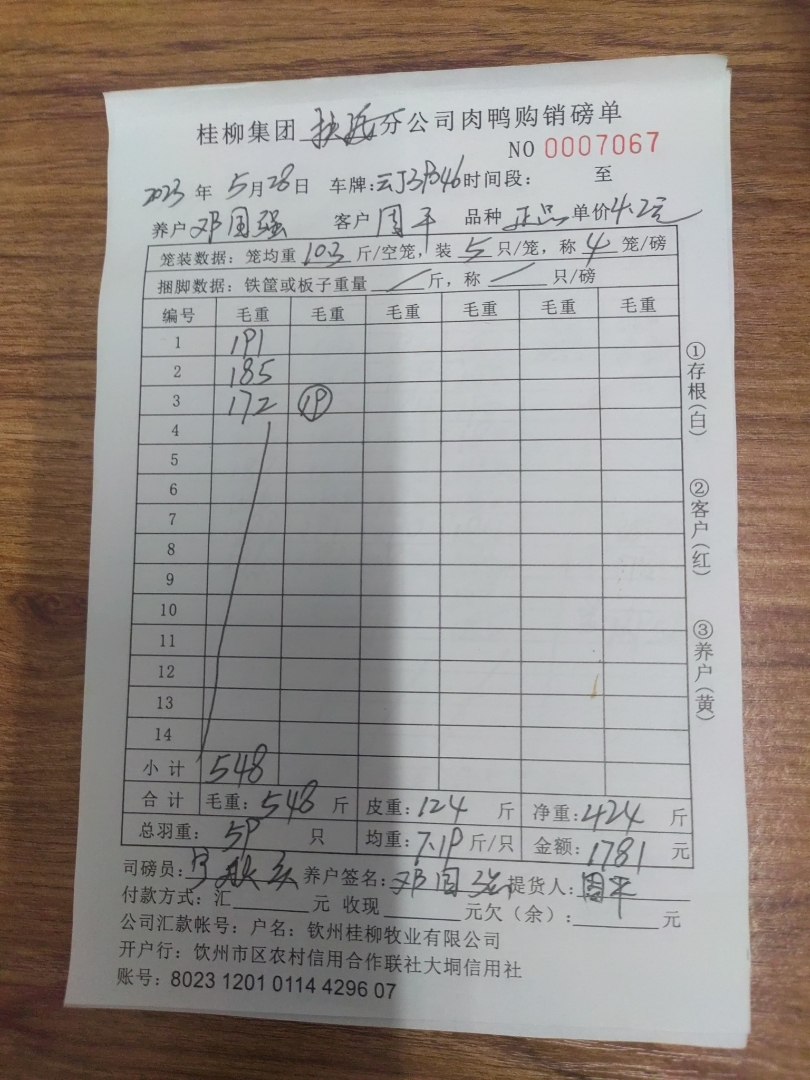 桂柳集团 分公司肉鸭购销磅单
NO 0007067
2023 年 5月28日 车牌: 时间段: 至
养户 邓国强 客户 周平 品种 正品 单价4.2元
笼装数据: 笼均重 10.3 斤/空笼, 装 5 只/笼, 称 4 笼/磅
捆脚数据: 铁筐或板子重量 / 斤, 称 / 只/磅
编号 毛重 毛重 毛重 毛重 毛重 毛重
1 191
2 185
3 172 19
4
5
6
7
8
9
10
11
12
13
14
小 计 548
合 计 毛重: 548 斤 皮重: 124 斤 净重: 424 斤
总羽重: 59 只 均重: 7.19 斤/只 金额: 1781 元
司磅员: 养户签名: 邓国强 提货人: 周平
付款方式: 汇 元 收现 元欠(余): 元
公司汇款帐号: 户名: 钦州桂柳牧业有限公司
开户行: 钦州市区农村信用合作联社大垌信用社
账号: 8023 1201 0114 4296 07
①存根(白)
②客户(红)
③养户(黄)